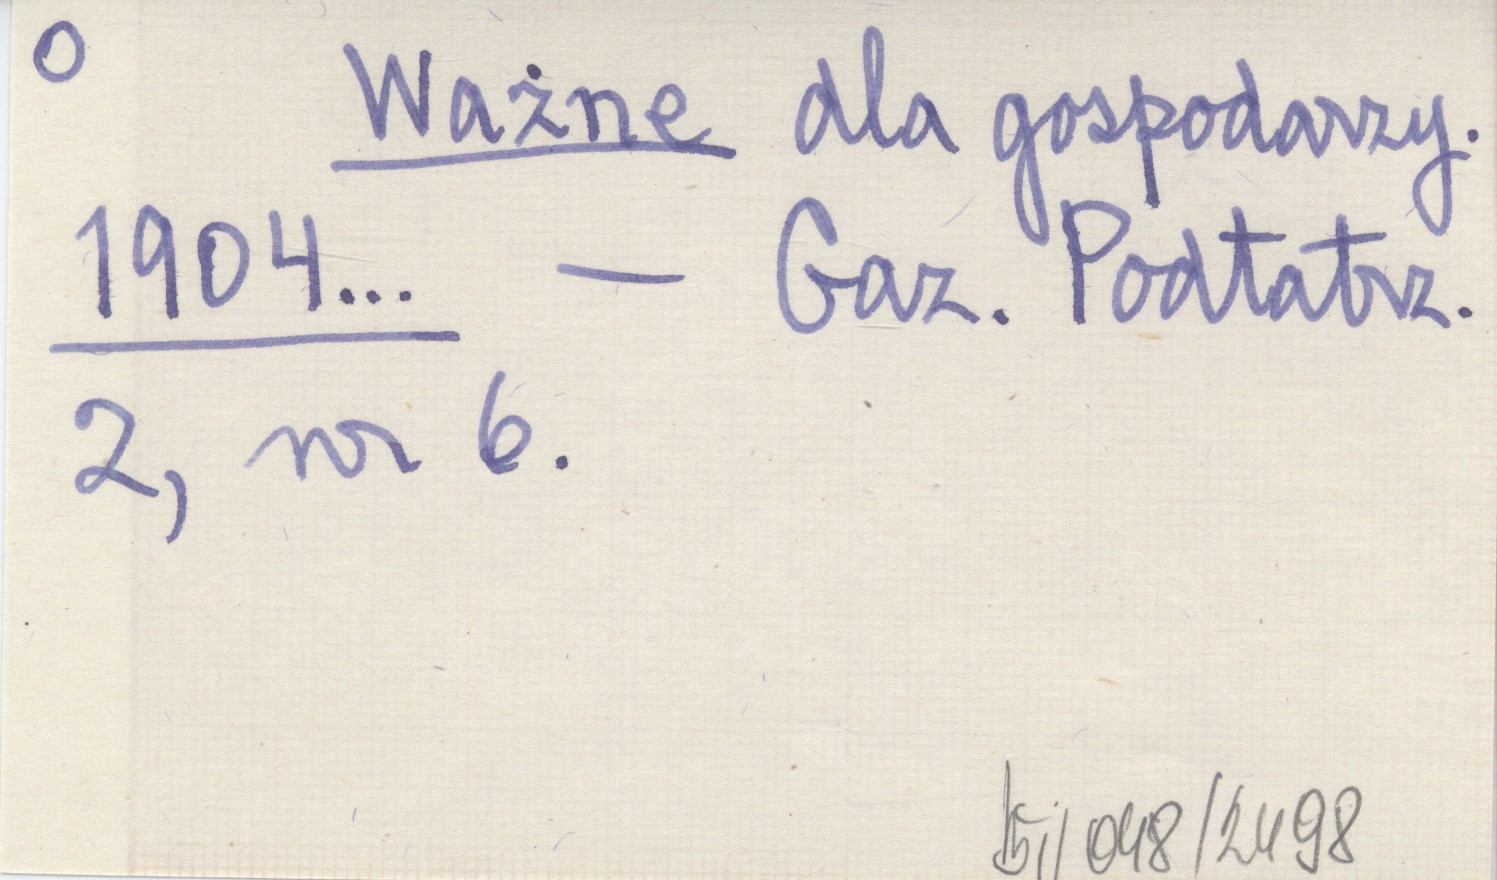 O Ważne dla gospodarzy.
1904... — Gaz. Podtatrz.
2, nr 6.
048/2498